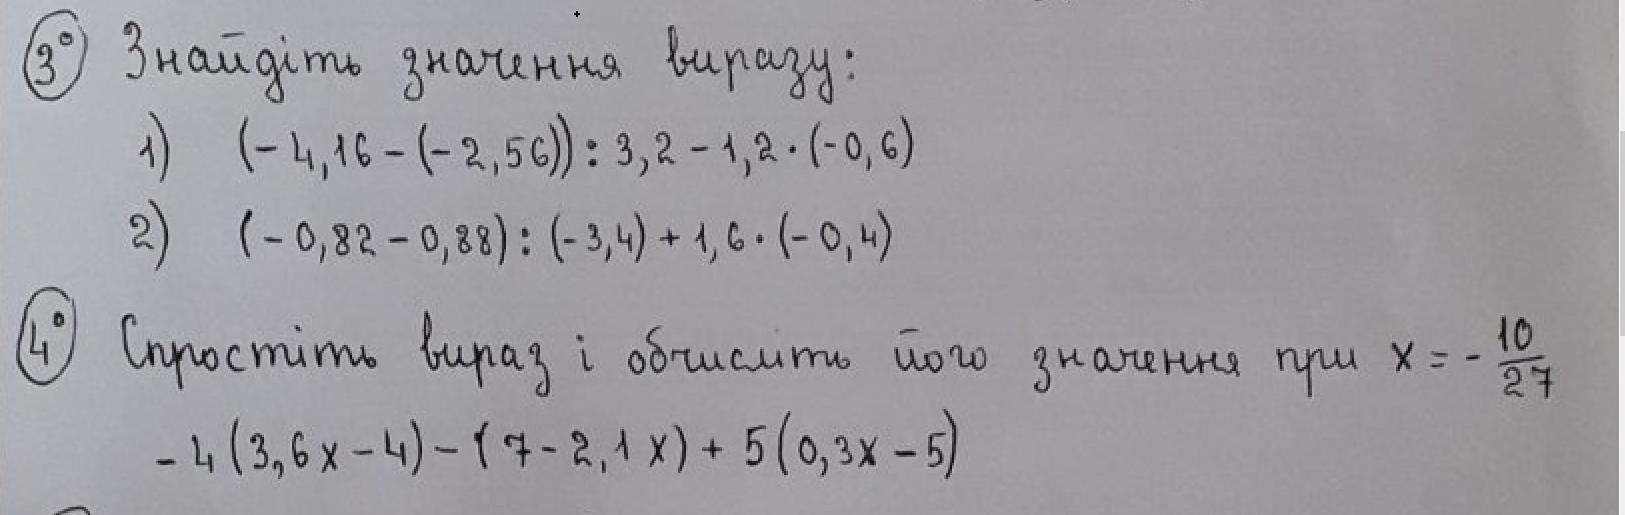 3° Знайдіть значення виразу:
1) (-4,16-(-2,56)):3,2-1,2·(-0,6)
2) (-0,82-0,88):(-3,4)+1,6·(-0,4)
4° Спростіть вираз і обчисліть його значення при x=-10/27
-4(3,6x-4)-(7-2,1x)+5(0,3x-5)